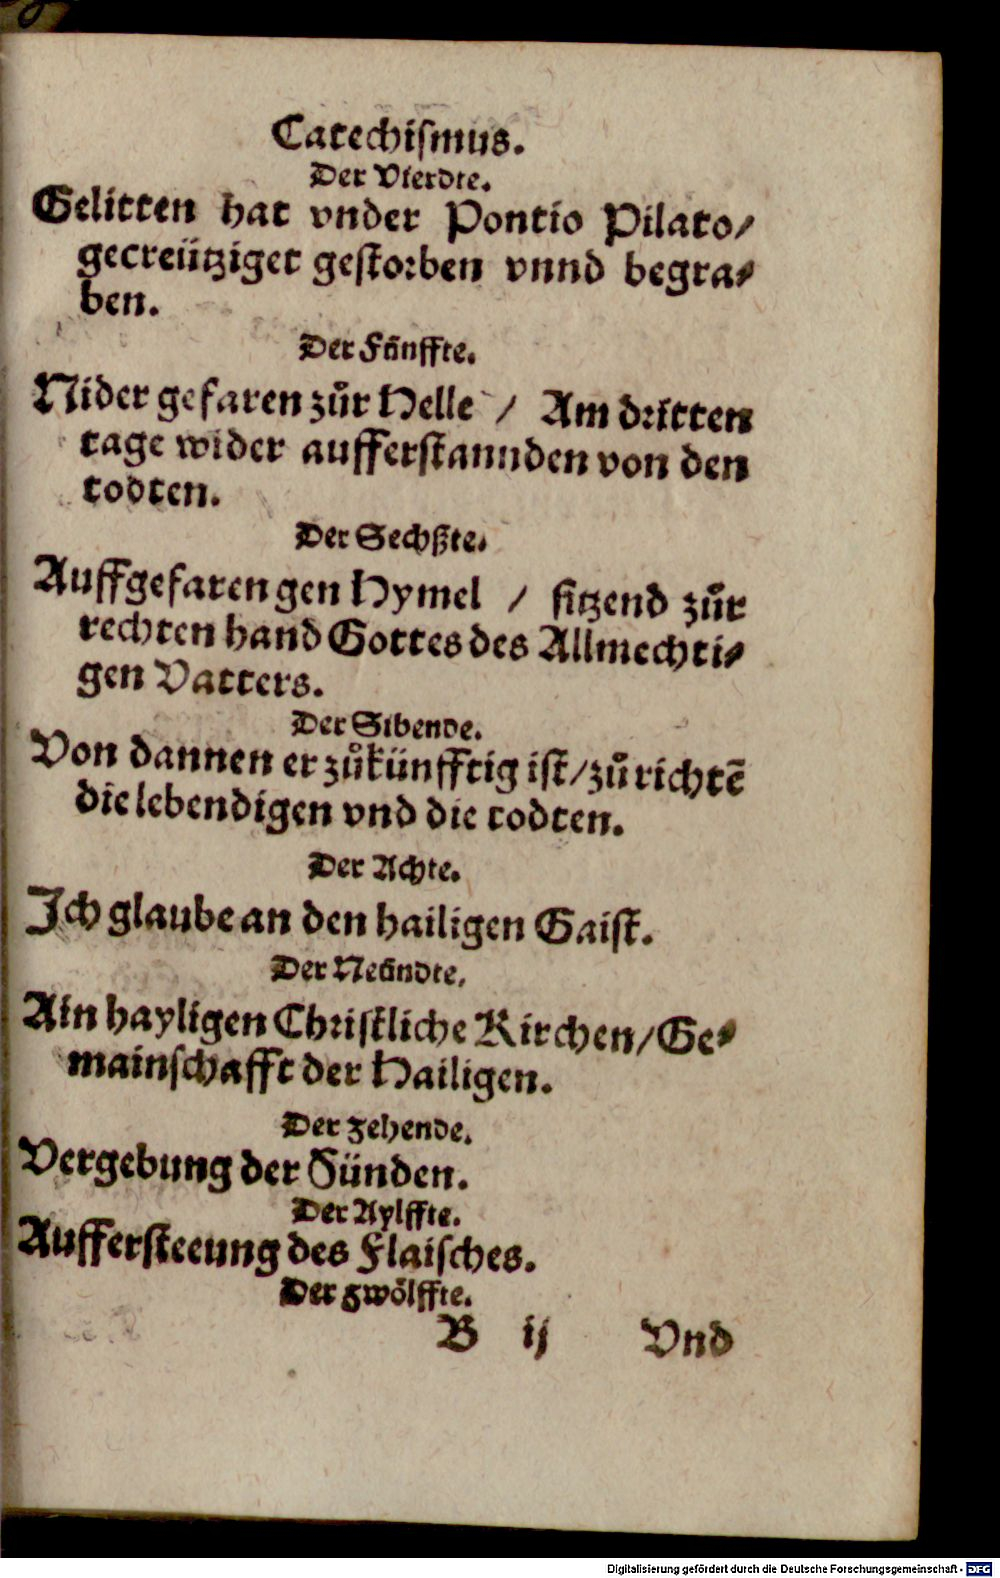 Catechismus.
Der Vierdte.
Gelitten hat vnder Pontio Pilato/
gecreütziget gestorben vnnd begra⸗
ben.
Der Fünffte.
Nider gefaren zůr Helle / Am dritten
tage wider aufferstannden von den
todten.
Der Sechßte.
Auffgefaren gen Hymel / sitzend zůr
rechten hand Gottes des Allmechti⸗
gen Vatters.
Der Sibende.
Von dannen er zůkünfftig ist/zů richtē
die lebendigen vnd die todten.
Der Achte.
Ich glaube an den hailigen Gaist.
Der Neündte.
Ain hayligen Christliche Kirchen/Ge⸗
mainschafft der Hailigen.
Der zehende.
Vergebung der Sünden.
Der Aylffte.
Auffersteeung des Flaisches.
Der zwölffte.
B ij Vnd
Digitalisierung gefördert durch die Deutsche Forschungsgemeinschaft - DFG